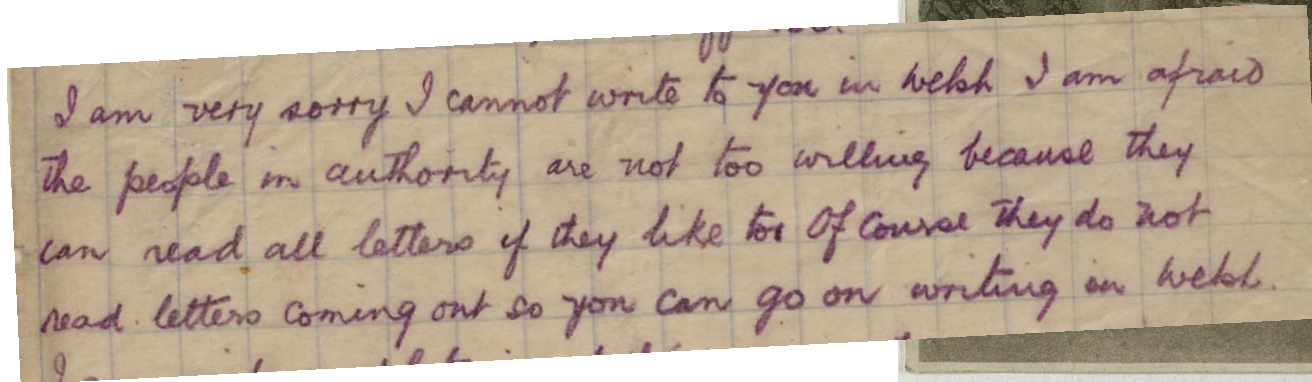 I am very sorry I cannot write to you in Welsh I am afraid
the people in authority are not too willing because they
can read all letters if they like to. Of course they do not
read letters coming out so you can go on writing in Welsh.